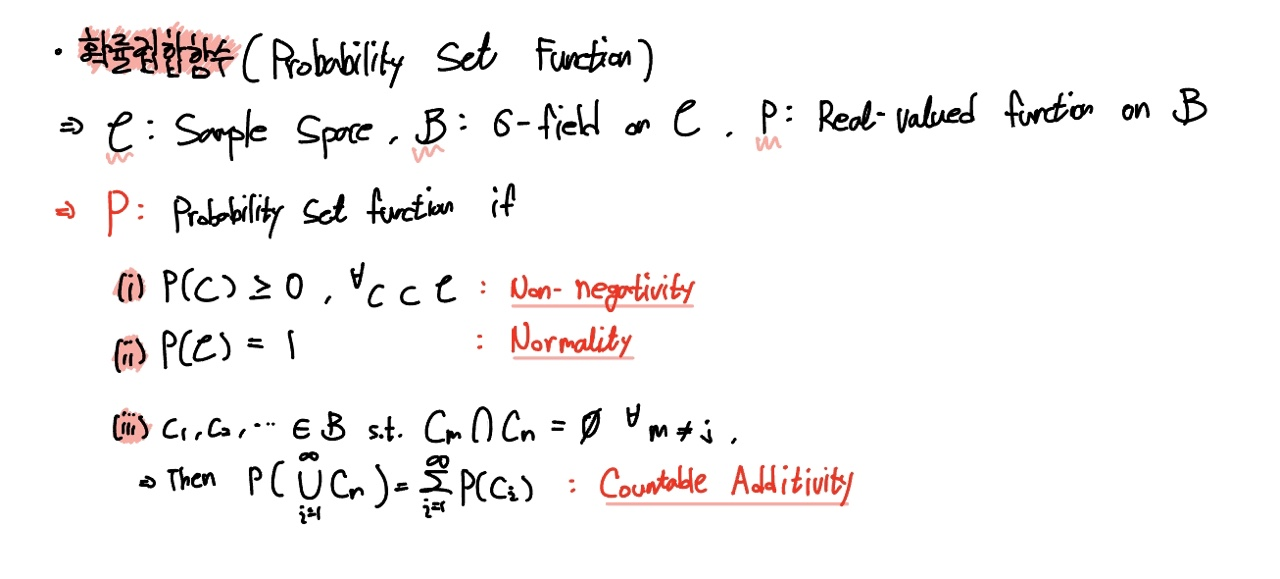 · 확률집합함수 (Probability Set Function)
⇒ 𝒞 : Sample Space, B : σ-field on 𝒞. P : Real-valued function on B
⇒ P : Probability Set function if
(i) P(C) ≥ 0, ∀C ⊂ 𝒞 : Non-negativity
(ii) P(𝒞) = 1 : Normality
(iii) C₁, C₂, ⋯ ∈ B s.t. Cₘ ⋂ Cₙ = ∅ ∀m ≠ j,
⇒ Then P(⋃_{i=1}^{∞} Cₙ) = ∑_{i=1}^{∞} P(Cᵢ) : Countable Additivity